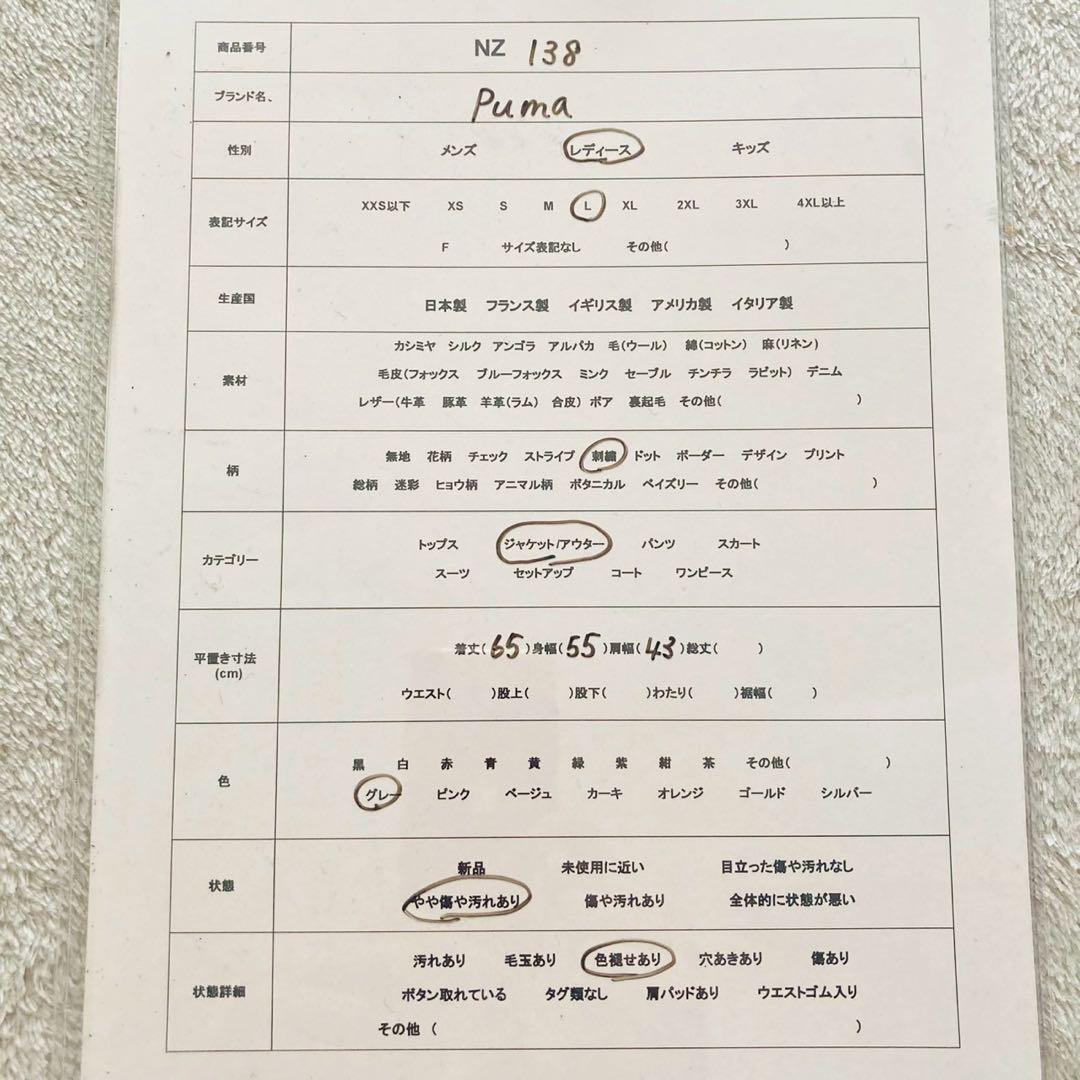 商品番号 NZ 138
ブランド名、 Puma
性別 メンズ レディース キッズ
表記サイズ
XXS以下 XS S M L XL 2XL 3XL 4XL以上
F サイズ表記なし その他( )
生産国 日本製 フランス製 イギリス製 アメリカ製 イタリア製
素材
カシミヤ シルク アンゴラ アルパカ 毛(ウール) 綿(コットン) 麻(リネン)
毛皮(フォックス ブルーフォックス ミンク セーブル チンチラ ラビット) デニム
レザー(牛革 豚革 羊革(ラム) 合皮) ボア 裏起毛 その他( )
柄
無地 花柄 チェック ストライプ 刺繍 ドット ボーダー デザイン プリント
総柄 迷彩 ヒョウ柄 アニマル柄 ボタニカル ペイズリー その他( )
カテゴリー
トップス ジャケット/アウター パンツ スカート
スーツ セットアップ コート ワンピース
平置き寸法
(cm)
着丈(65)身幅(55)肩幅(43)総丈( )
ウエスト( )股上( )股下( )わたり( )裾幅( )
色
黒 白 赤 青 黄 緑 紫 紺 茶 その他( )
グレー ピンク ベージュ カーキ オレンジ ゴールド シルバー
状態
新品 未使用に近い 目立った傷や汚れなし
やや傷や汚れあり 傷や汚れあり 全体的に状態が悪い
状態詳細
汚れあり 毛玉あり 色褪せあり 穴あきあり 傷あり
ボタン取れている タグ類なし 肩パッドあり ウエストゴム入り
その他 ( )